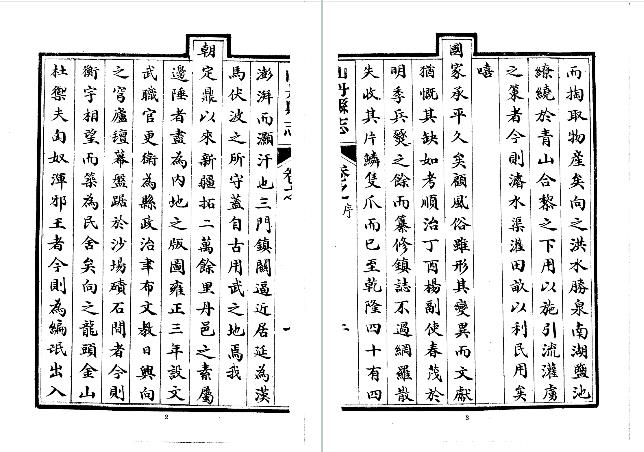 澎湃而灝汗也三門鎮關逼近居延為漢
馬伏波之所守蓋自古用武之地焉我
朝定鼎以來新疆拓二萬餘里丹邑之素屬
邊陲者盡為內地之版圖雍正三年設文
武職官更衛為縣政治聿布文教日興向
之穹廬氊幕盤踞於沙場磧石間者今則
衡宇相望而築為民舍矣向之龍頭金山
杜禦夫匈奴渾邪王者今則為編氓出入
2
山丹縣志
序
而掏取物產矣向之洪水勝泉南湖鹽池
繚繞於青山合黎之下用以施引流灌虜
之策者今則濬水渠灌田畝以利民用矣
嘻
國家承平久矣顧風俗雖形其變異而文獻
猶慨其缺如考順治丁酉楊副使春茂於
明季兵燹之餘而纂修鎮誌不過網羅散
失收其片鱗隻爪而已至乾隆四十有四
3